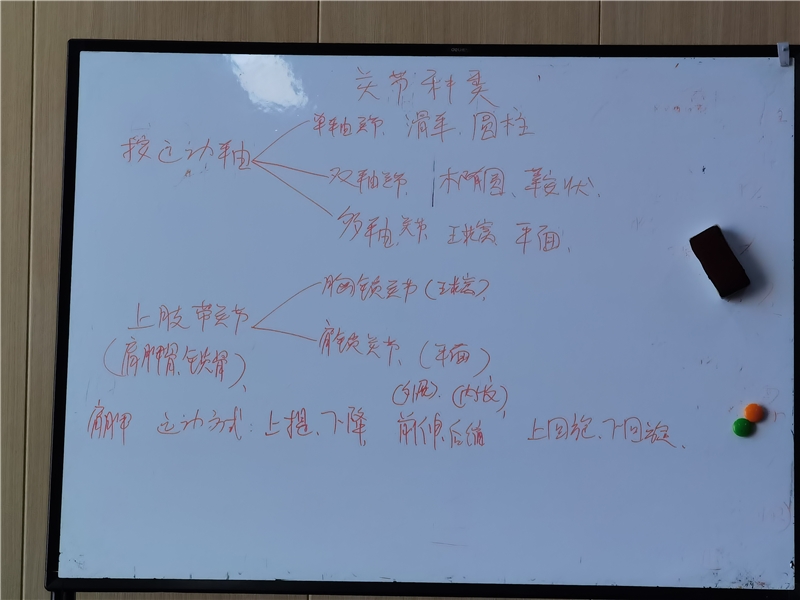 关节种类
单轴关节 滑车、圆柱
按运动轴
双轴关节 椭圆、鞍状
多轴关节 球窝 平面
胸锁关节(球窝)
上肢带关节
肩锁关节(平面)
(肩胛骨、锁骨)
(外展)(内收)
肩胛 运动方式:上提、下降 前伸、后缩 上回旋、下回旋